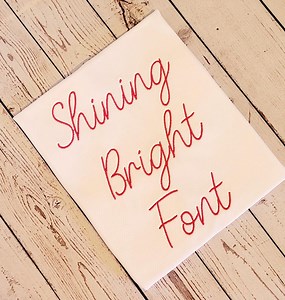 Shining
Bright
Font